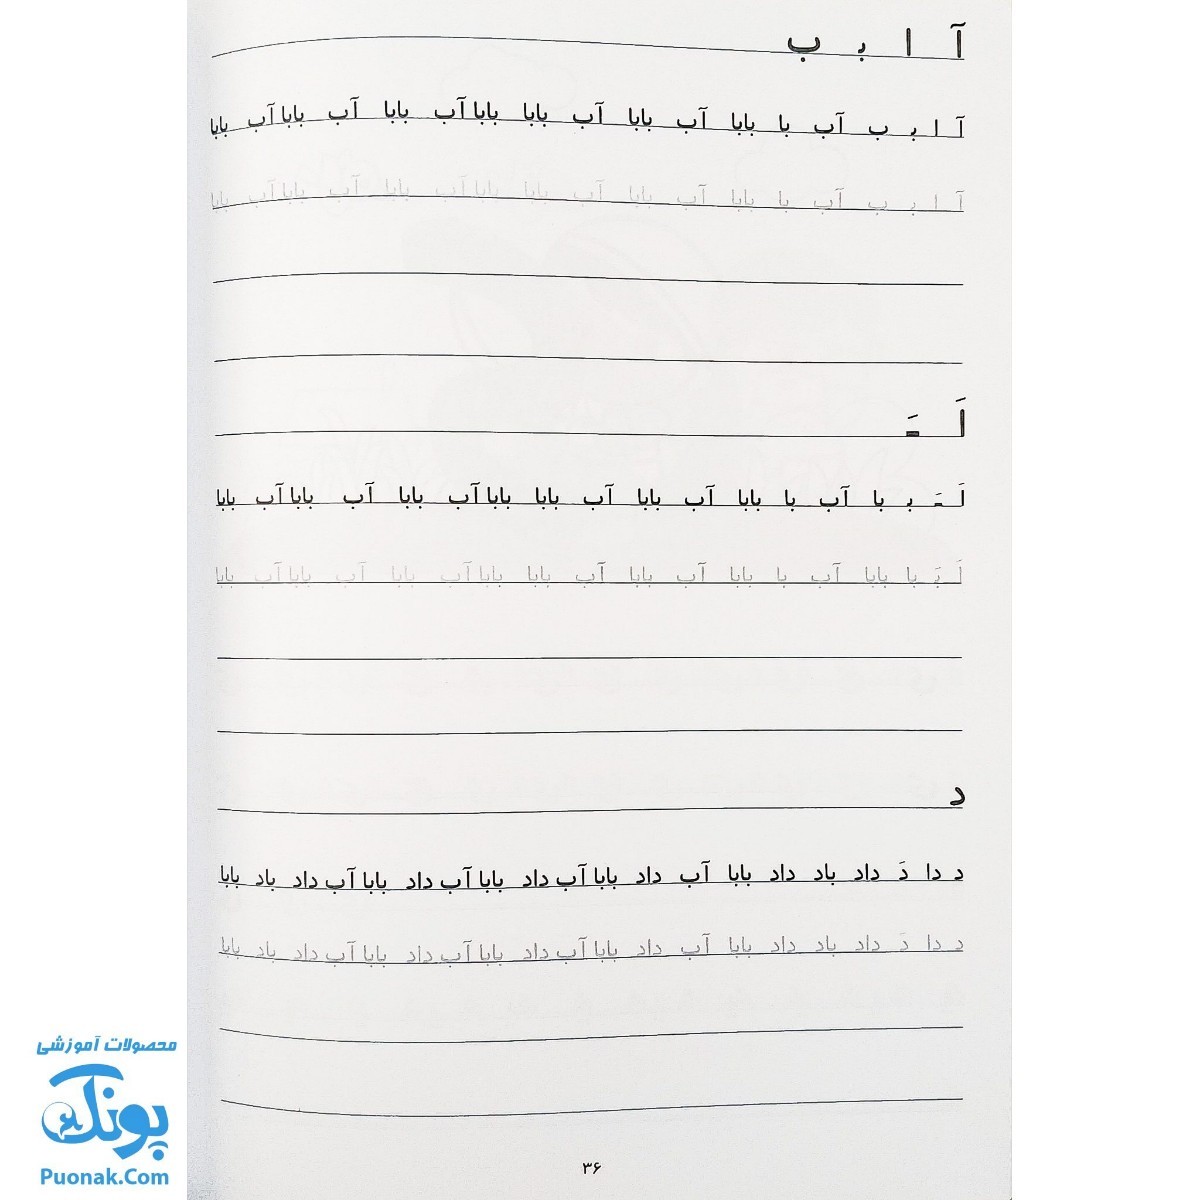 آ ا بـ ب
آ ا بـ ب آب با بابا آب بابا آب بابا بابا آب بابا آب بابا آب بابا
آ ا بـ ب آب با بابا آب بابا آب بابا بابا آب بابا آب بابا آب بابا
اَ ـَ
اَ ـَ بـ با آب با بابا آب بابا آب بابا بابا آب بابا آب بابا آب بابا
اَ بَـ با بابا آب با بابا آب بابا آب بابا بابا آب بابا آب بابا آب بابا
د
د دا دَ داد باد داد بابا آب داد بابا آب داد بابا آب داد بابا آب داد باد بابا
د دا دَ داد باد داد بابا آب داد بابا آب داد بابا آب داد بابا آب داد باد بابا
۳۶
محصولات آموزشی
پونک
Puonak.Com